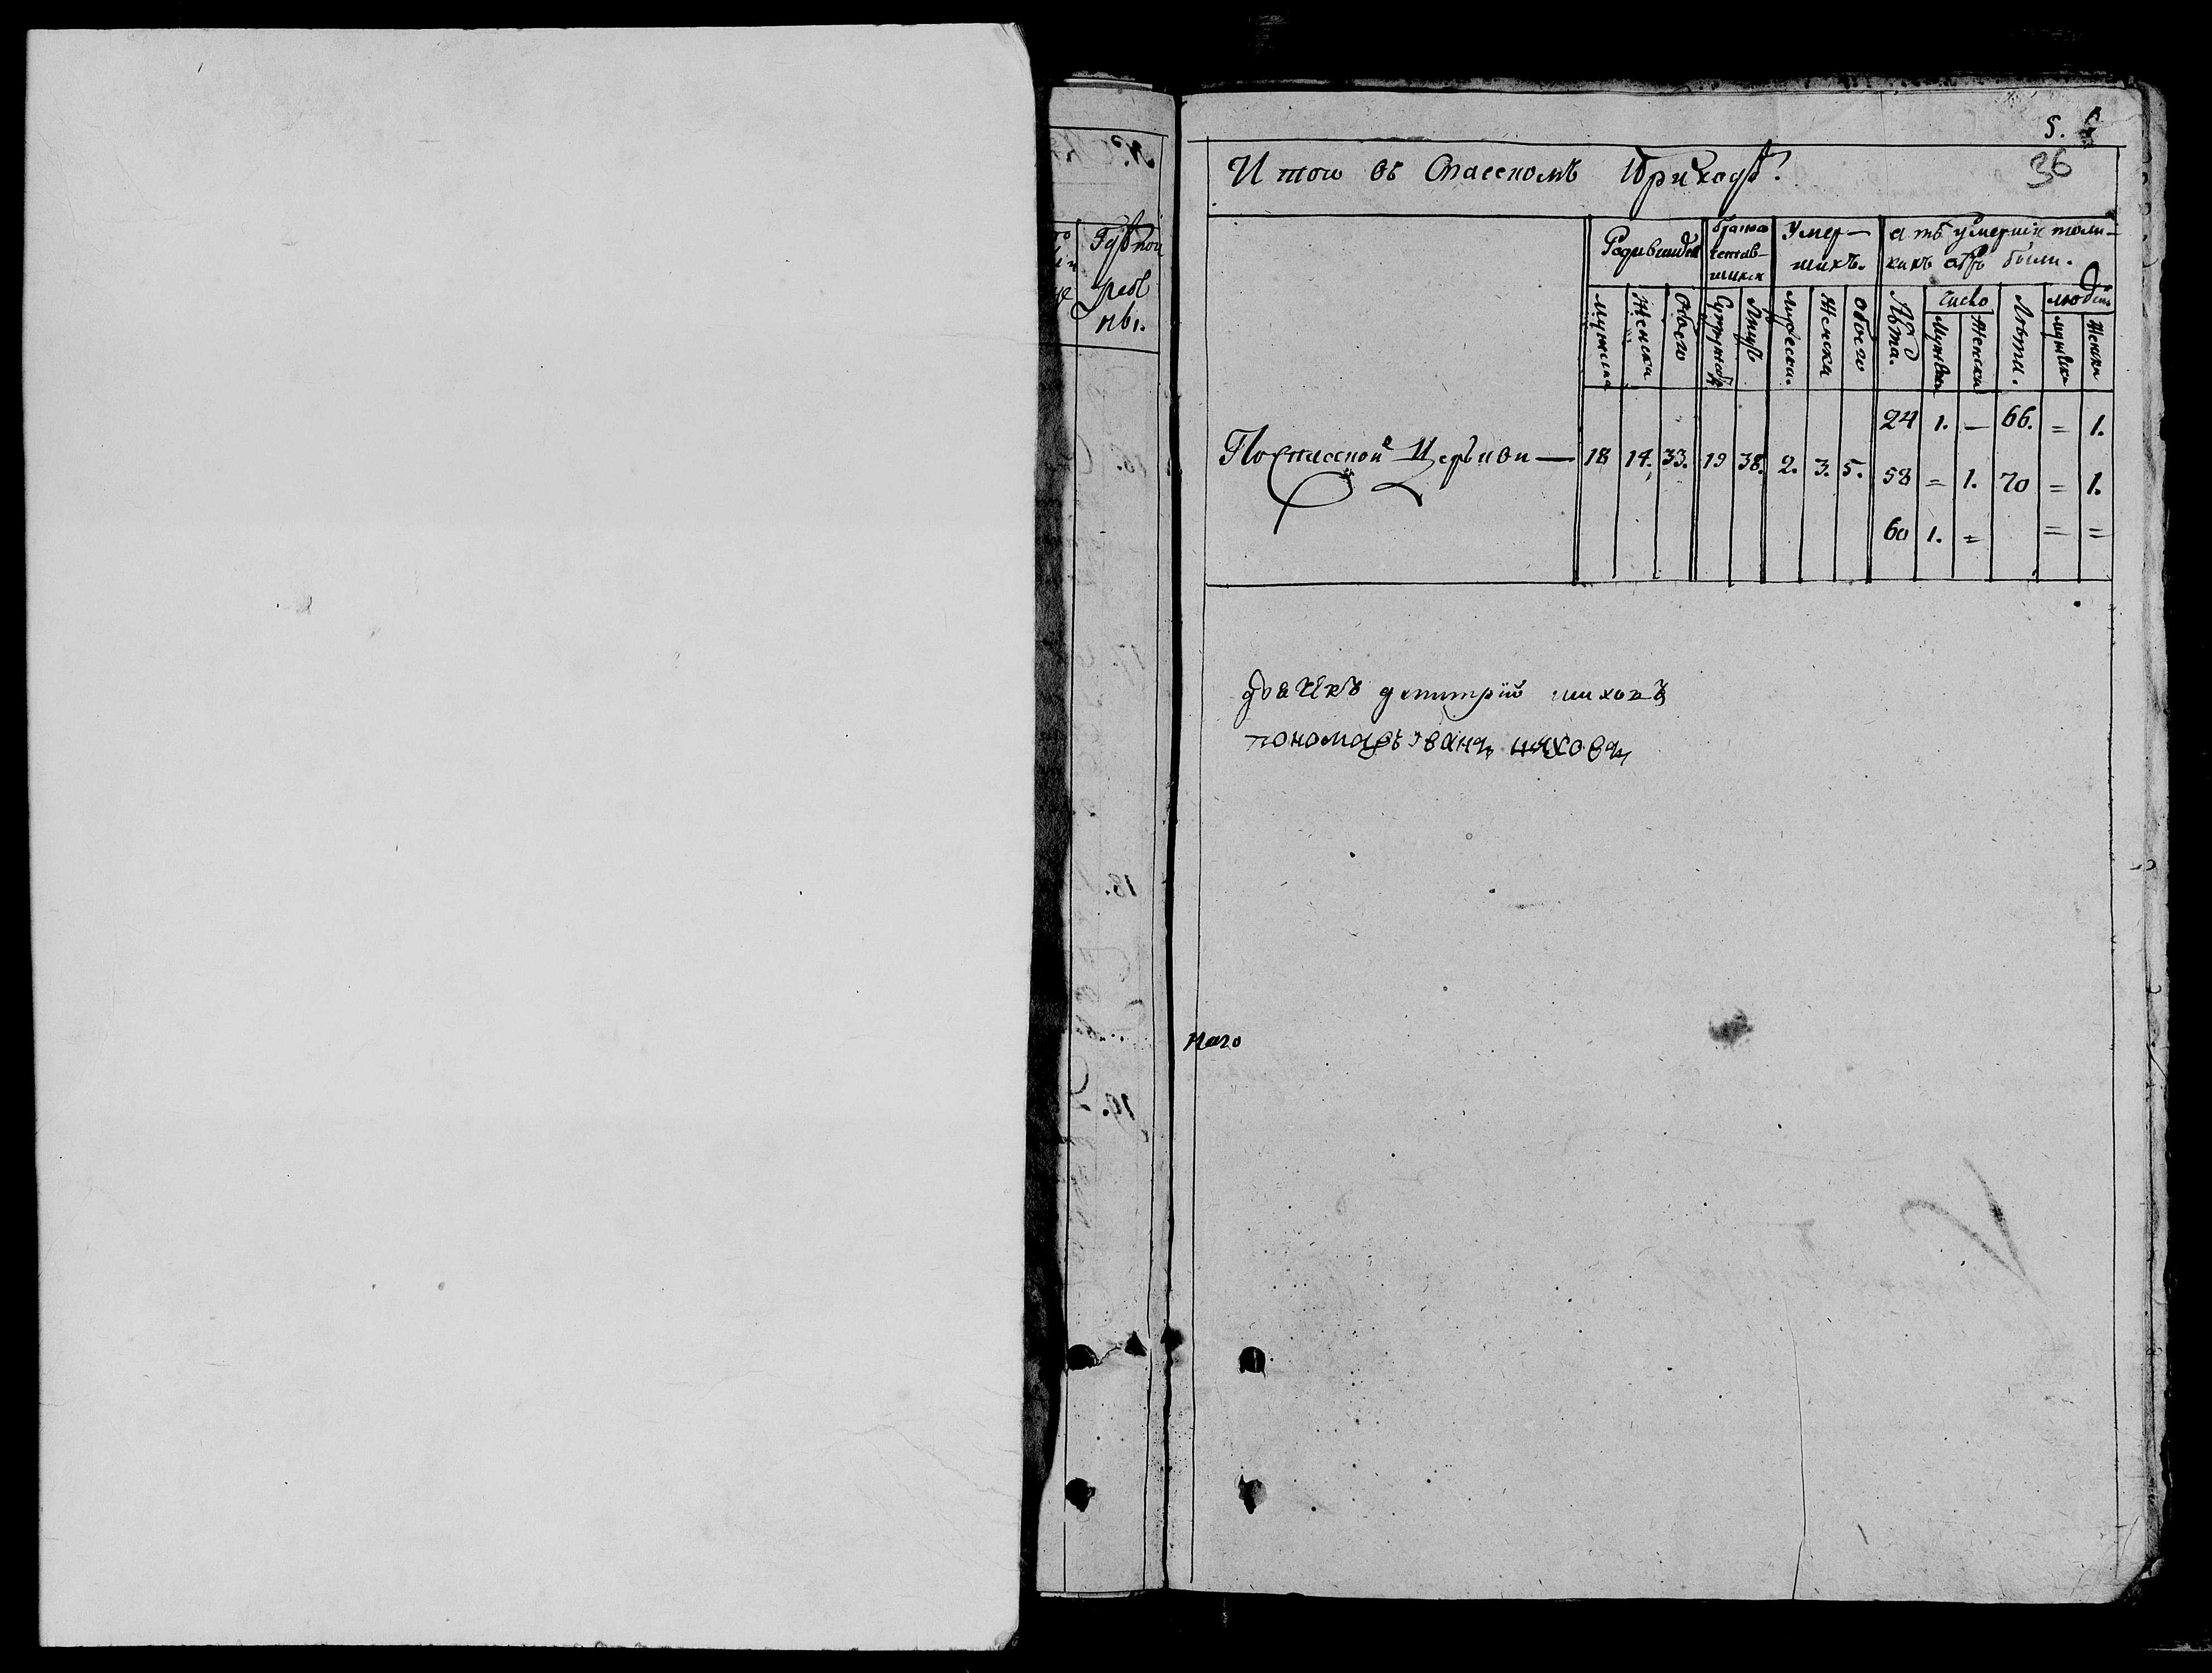 5.
36
Итого въ Спасскомъ Приходѣ.
Родившихся
бракосочетавшихся
Умершихъ.
а тѣ умершіе толикихъ лѣтъ были.
Мужеска
Женска
Обоего
Супружествъ
Лицъ
Мужеска.
Женска
Обоего
Лѣта.
Число
Мужска
Женска
Лѣта.
людей
мужска
Женска
24 1. — 66. = 1.
По Спасской Церькви — 18 14. 33. 19 38. 2. 3. 5. 58 = 1. 70 = 1.
60 1. = = =
дьячекъ димитрій шиховъ
пономарь Іванъ шиховъ
наго
16.
17.
18.
19.